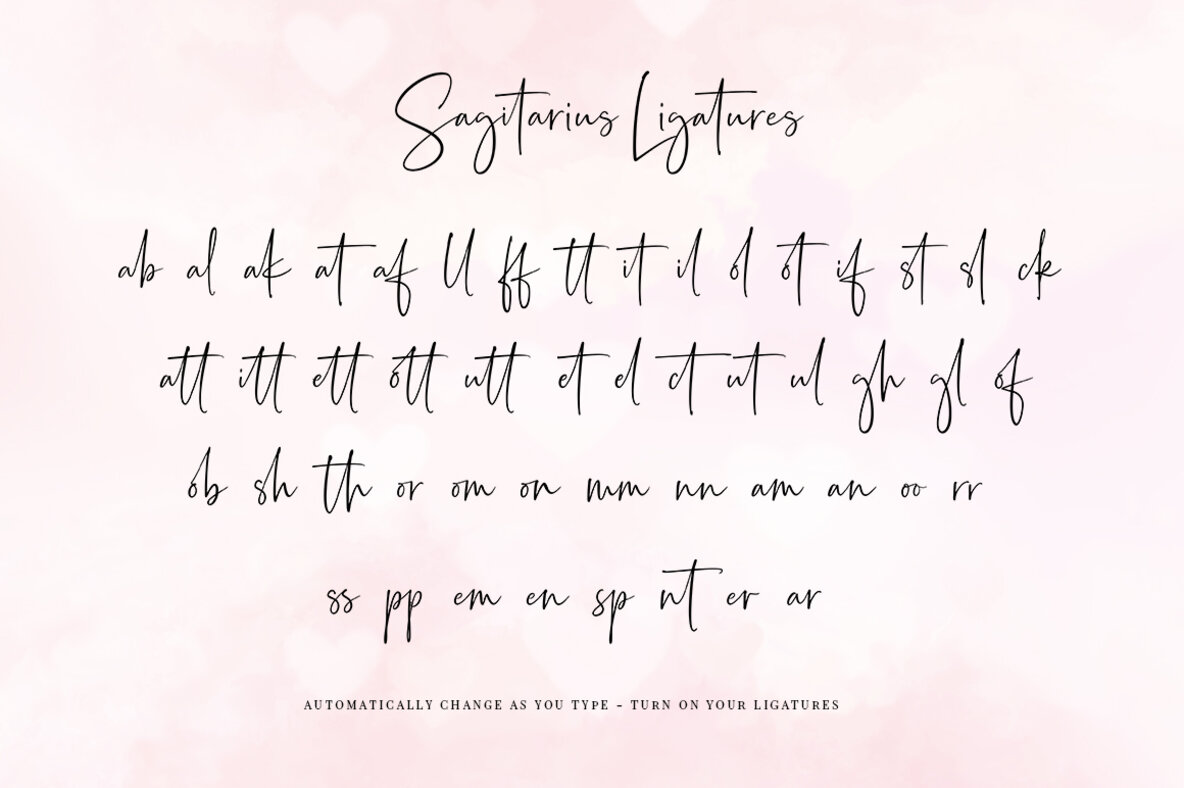 Sagitarius Ligatures
ab al ak at af ll ff tt it il ol ot if st sl ck
att itt ett ott utt et el ct ut ul gh gl of
ob sh th or om on mm nn am an oo rr
ss pp em en sp nt er ar
AUTOMATICALLY CHANGE AS YOU TYPE - TURN ON YOUR LIGATURES